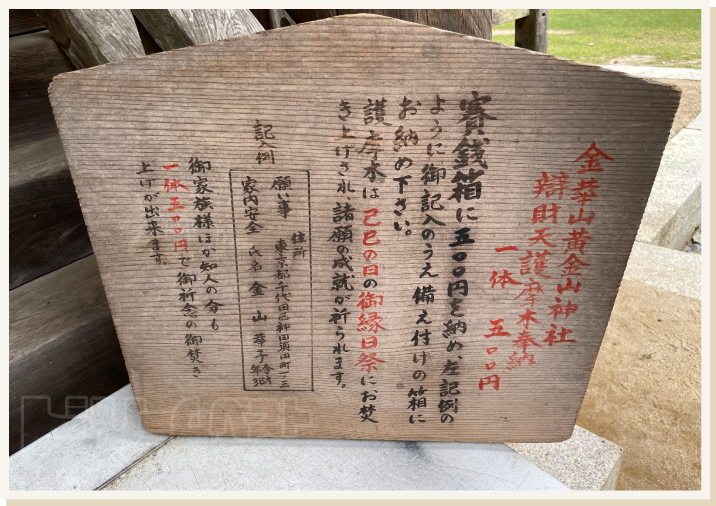 金華山黄金山神社
辯財天護摩木奉納
一体　五〇〇円
賽銭箱に五〇〇円を納め、左記例の
ように御記入のうえ備え付けの箱に
お納め下さい。
護摩木は己巳の日の御縁日祭にお焚
き上げされ諸願の成就が祈られます。
記入例
願い事
家内安全
住所
東京都千代田区神田須田町一ノ三
氏名　金山華子
年令38才
御家族様ほか知人の分も
一体五〇〇円で御祈念の御焚き
上げが出来ます。